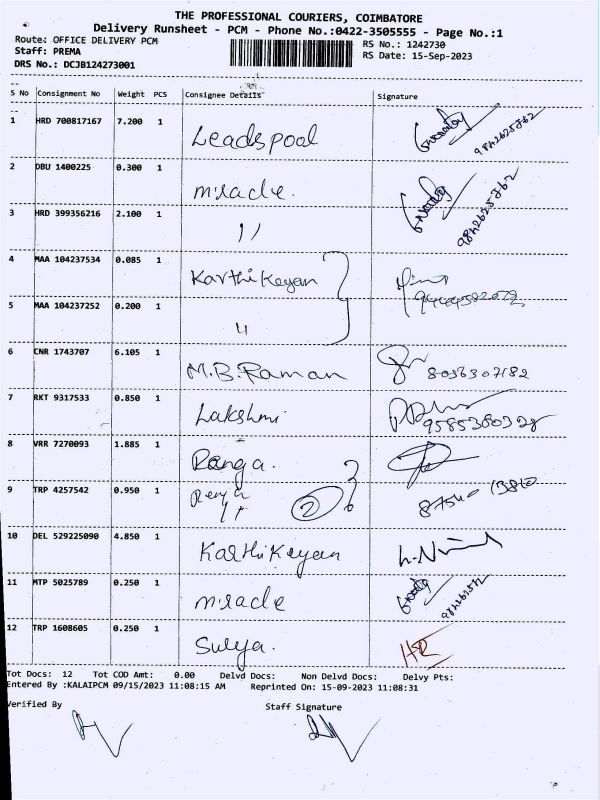 THE PROFESSIONAL COURIERS, COIMBATORE
Delivery Runsheet - PCM - Phone No.:0422-3505555 - Page No.:1
Route: OFFICE DELIVERY PCM
RS No.: 1242730
Staff: PREMA
RS Date: 15-Sep-2023
DRS No.: DCJB124273001
S No Consignment No Weight PCS Consignee Details Signature
1 HRD 700817167 7.200 1 Leadspool
2 DBU 1400225 0.300 1 miracle.
3 HRD 399356216 2.100 1 11
4 MAA 104237534 0.085 1 Karthikeyan
5 MAA 104237252 0.200 1 11
6 CNR 1743707 6.105 1 M.B.Raman 8056307182
7 RKT 9317533 0.850 1 Lakshmi 9585380328
8 VRR 7270093 1.885 1 Ranga.
9 TRP 4257542 0.950 1 11 2 87540 13810
10 DEL 529225090 4.850 1 Karthikeyan
11 MTP 5025789 0.250 1 miracle
12 TRP 1608605 0.250 1 Surya.
Tot Docs: 12 Tot COD Amt: 0.00 Delvd Docs: Non Delvd Docs: Delvy Pts:
Entered By :KALAIPCM 09/15/2023 11:08:15 AM Reprinted On: 15-09-2023 11:08:31
Verified By Staff Signature